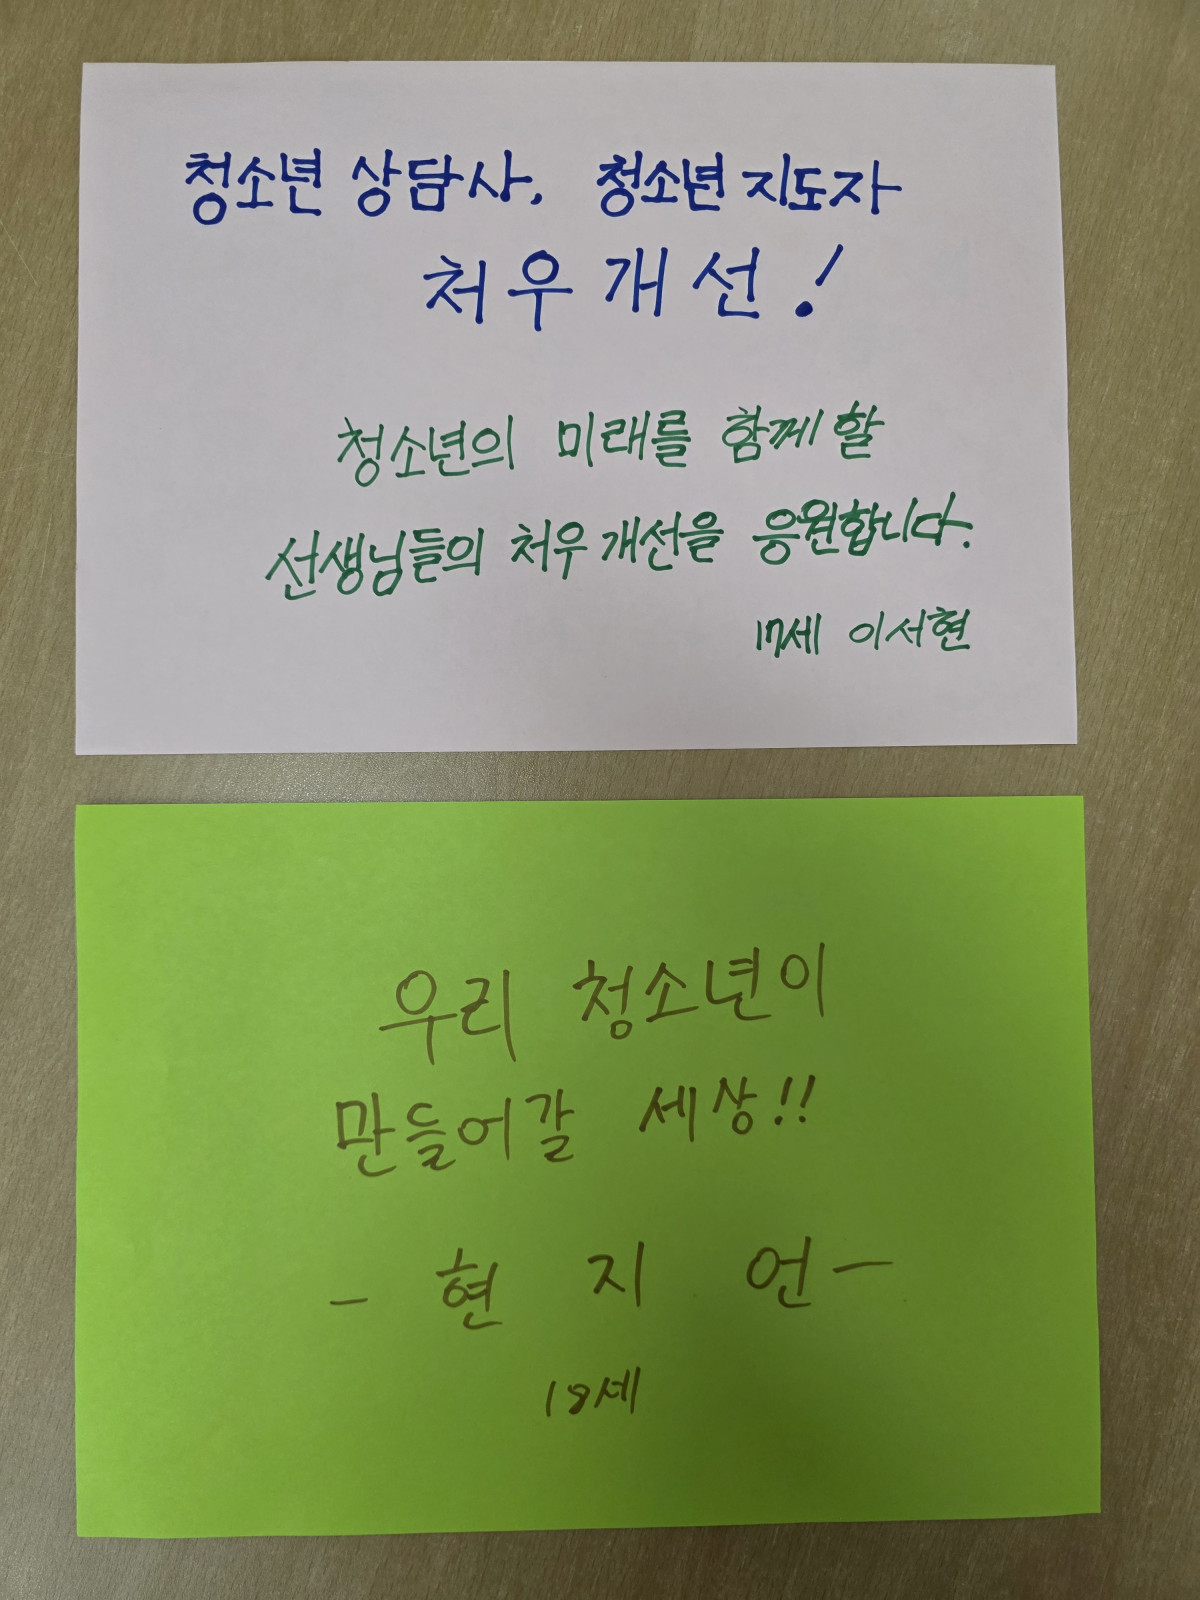 청소년 상담사, 청소년 지도자
처우개선!
청소년의 미래를 함께할
선생님들의 처우개선을 응원합니다.
17세 이서현
우리 청소년이
만들어갈 세상!!
- 현 지 언 -
18세